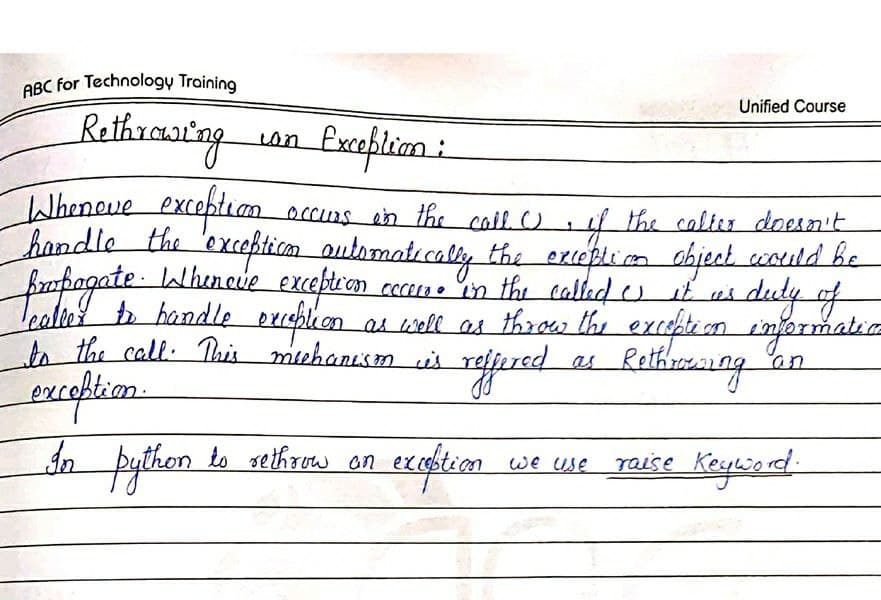 ABC for Technology Training
Unified Course
Rethrowing an Exception :
Wheneve exception occurs in the call () , if the caller doesn't
handle the exception automatically the exception object would be
propogate. Wheneve exception occurs in the called () it is duty of
caller to handle exception as well as throw the exception informatio
to the call. This mechanism is reffered as Rethrowing an
exception.
In python to rethrow an exception we use raise Keyword.